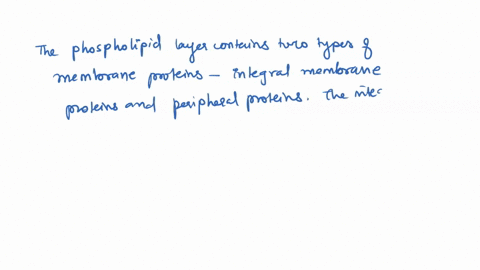 The phospholipid layer contains two types of
membrane proteins – integral membrane
proteins and peripheral proteins. The